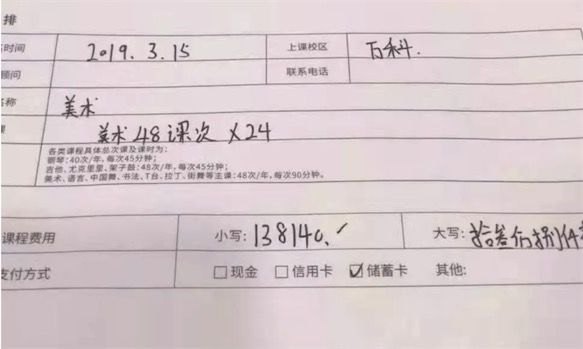 排
时间 2019.3.15 上课校区 百科.
顾问 联系电话
名称 美术
美术48课次 X24
各类课程具体总次课及课时为:
钢琴:40次/年,每次45分钟;
吉他、尤克里里、架子鼓:48次/年,每次45分钟;
美术、语言、中国舞、书法、T台、拉丁、街舞等主课:48次/年,每次90分钟。
课程费用 小写:138140. 大写:拾叁万捌仟
支付方式 □现金 □信用卡 ☑储蓄卡 其他: